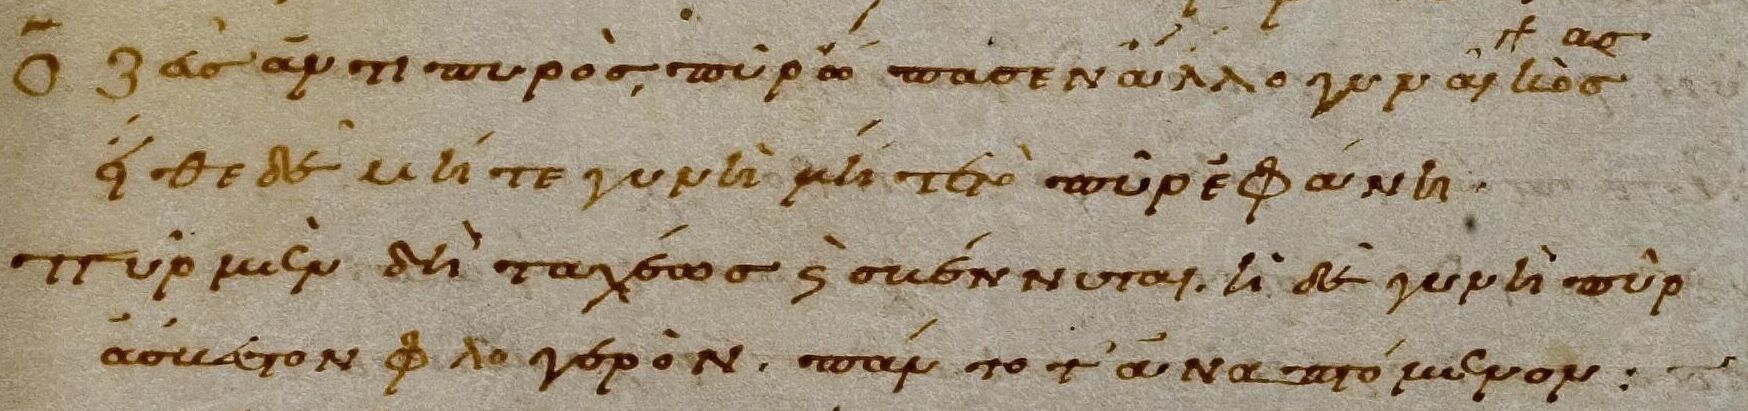 ὁ ζεὺς ἀντὶ πυρὸς, πῦρ ὤπασεν ἄλλο γυναῖκας
εἴθε δὲ μήτε γυνὴ μήτε τὸ πῦρ ἐφάνη.
πῦρ μὲν δὴ ταχέως σβέννυται. ἡ δὲ γυνὴ πῦρ
ἄσβεστον φλογερὸν. πάντοτ' ἀναπτόμενον: